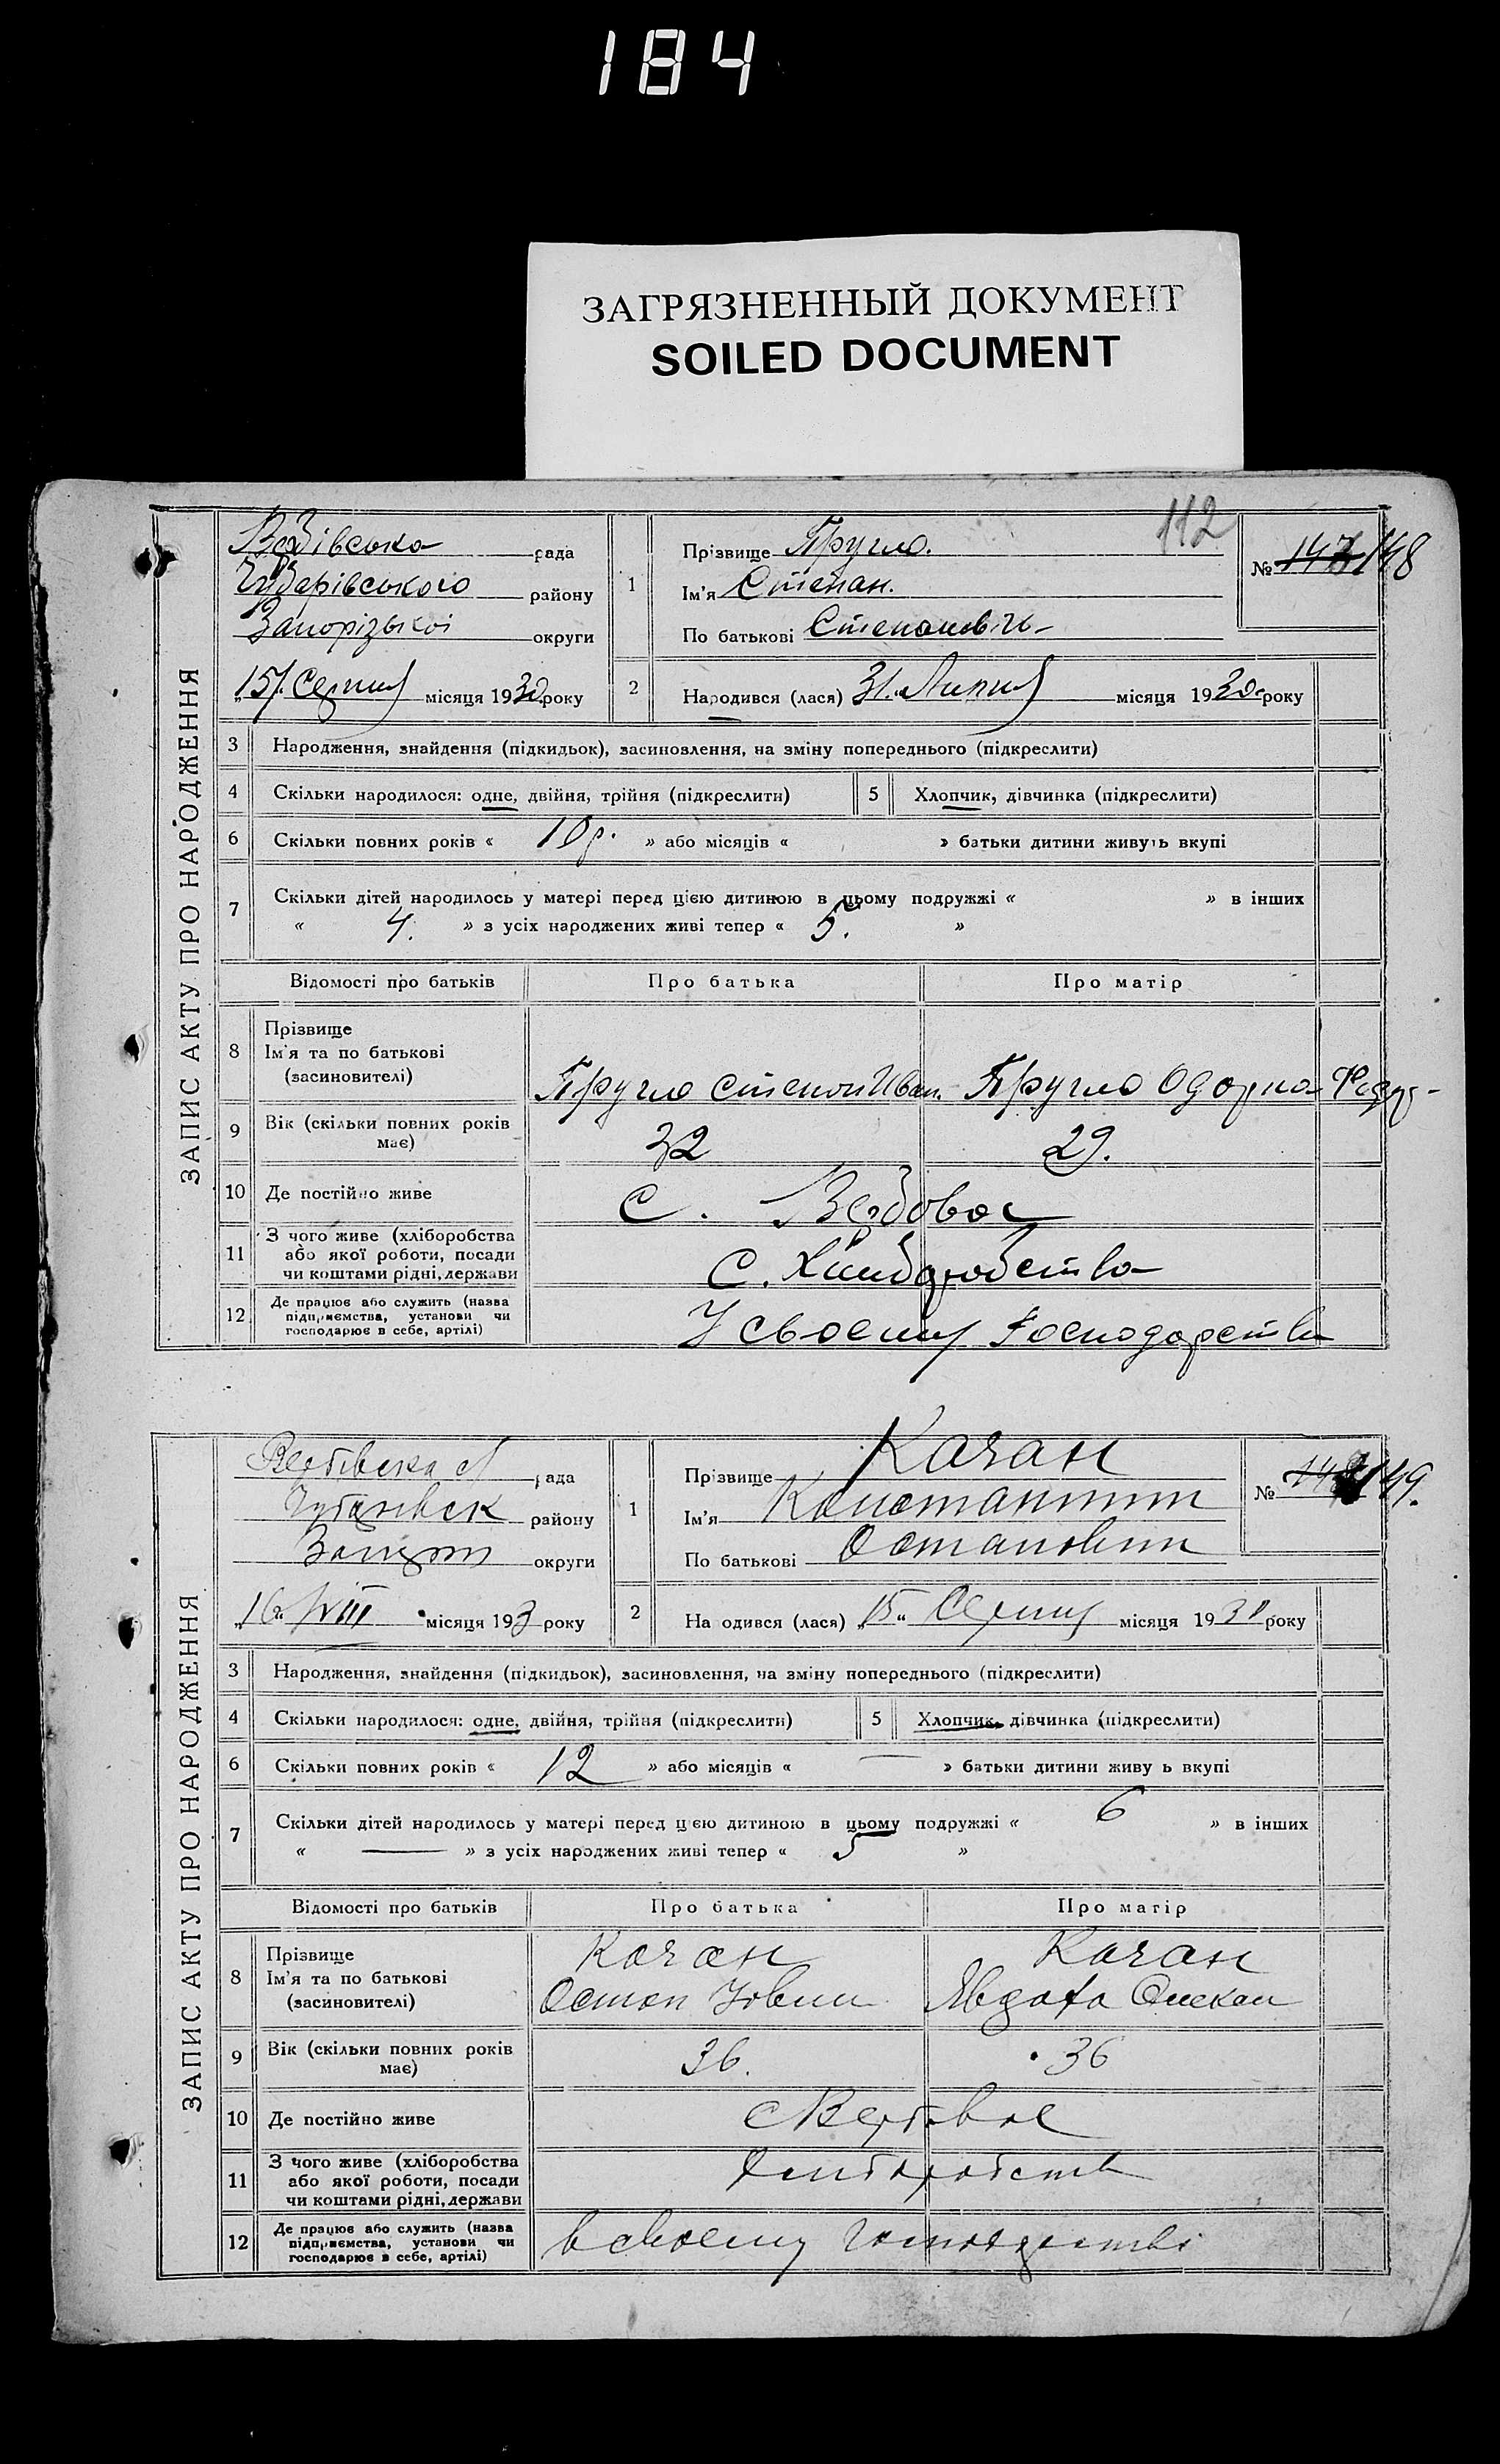 184
ЗАГРЯЗНЕННЫЙ ДОКУМЕНТ
SOILED DOCUMENT
112
ЗАПИС АКТУ ПРО НАРОДЖЕННЯ
Вербівська рада
Чубарівського району
Запорізької округи
„15". Серпня місяця 1930 року
1
Прізвище Пругло.
Ім'я Степан.
По батькові Степановіч
№ 147 148
2 Народився (лася) 31 „Липня місяця 1930 року
3 Народження, знайдення (підкидьок), засиновлення, на зміну попереднього (підкреслити)
4 Скільки народилося: одне, двійня, трійня (підкреслити) 5 Хлопчик, дівчинка (підкреслити)
6 Скільки повних років « 10 р. » або місяців « » батьки дитини живуть вкупі
7 Скільки дітей народилось у матері перед цією дитиною в цьому подружжі « » в інших
« 4. » з усіх народжених живі тепер « 5. »
Відомості про батьків Про батька Про матір
8 Прізвище
Ім'я та по батькові
(засиновителі)
Пругло Степон Иван. Пругло Одарка Федор-
9 Вік (скільки повних років має) 32 29.
10 Де постійно живе С. Вербовое
11 З чого живе (хліборобства
або якої роботи, посади
чи коштами рідні, держави
С. Хлиборобства
12 Де працює або служить (назва
підприємства, установи чи
господарює в себе, артілі)
У своему Господарстви
ЗАПИС АКТУ ПРО НАРОДЖЕННЯ
Вербівська рада
Чубарівськ району
округи
„16" VIII місяця 193 року
1
Прізвище Качан
Ім'я Константин
По батькові Остапович
№ 148 149.
2 На одився (лася) „15" Серпня місяця 1930 року
3 Народження, знайдення (підкидьок), засиновлення, на зміну попереднього (підкреслити)
4 Скільки народилося: одне, двійня, трійня (підкреслити) 5 Хлопчик, дівчинка (підкреслити)
6 Скільки повних років « 12 » або місяців « — » батьки дитини живу ь вкупі
7 Скільки дітей народилось у матері перед цією дитиною в цьому подружжі « 6 » в інших
« — » з усіх народжених живі тепер « 5 »
Відомості про батьків Про батька Про матір
8 Прізвище
Ім'я та по батькові
(засиновителі)
Качан Качан
Остап Явдоха
9 Вік (скільки повних років має) 36. 36
10 Де постійно живе с Вербовое
11 З чого живе (хліборобства
або якої роботи, посади
чи коштами рідні, держави
Хлиборобств
12 Де працює або служить (назва
підприємства, установи чи
господарює в себе, артілі)
в своему господрстві